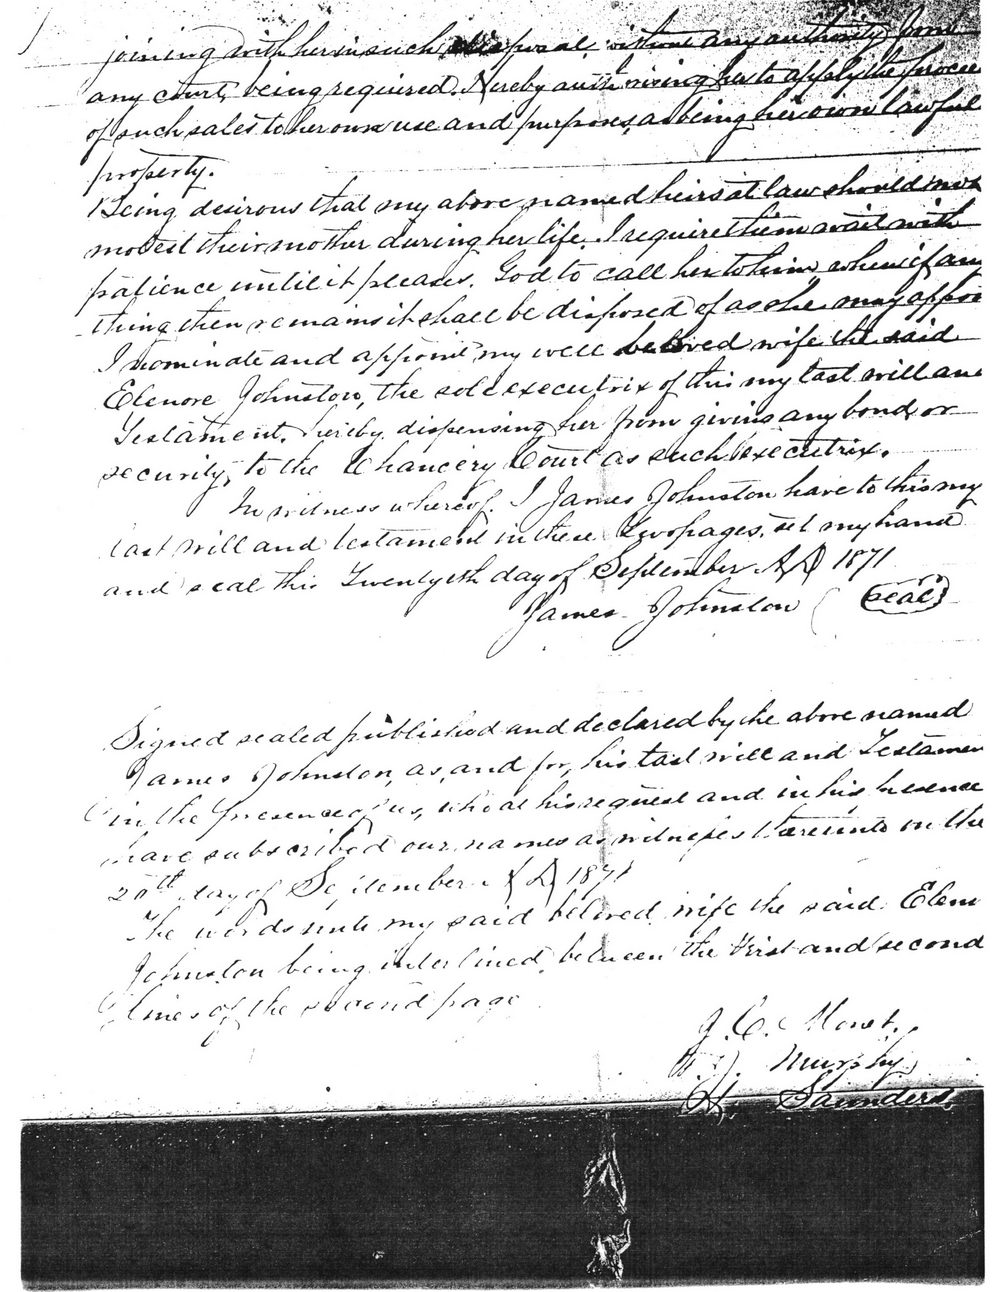 joining with her in such disposal without any authority from
any court, being required. Hereby authorising her to apply the procee
of such sales to her own use and purposes, as being her own lawful
property.
Being desirous that my above named heirs at law should not
molest their mother during her life. I require them wait with
patience until it pleases, God to call her to him, when if any
thing then remains it shall be disposed of as she may appoi
I nominate and appoint my well beloved wife the said
Elenore Johnston, the sole executrix of this my last will an
Testament, hereby dispensing her from giving any bond or
security, to the Chancery Court as such executrix.
In witness whereof. I James Johnston have to this my
last will and testament in these Two pages, set my hand
and seal this Twentyeth day of September AD 1871
James Johnston (seal)
Signed sealed published and declared by the above named
James Johnston, as, and for, his last will and Testamen
in the presence of us, who at his request and in his presence
have subscribed our names as witnesses thereunto on the
20th day of September AD 1871
The words unto my said beloved wife the said Elen
Johnston being interlined, between the First and second
lines of the second page
J. C.
Murphy
H. Saunders.